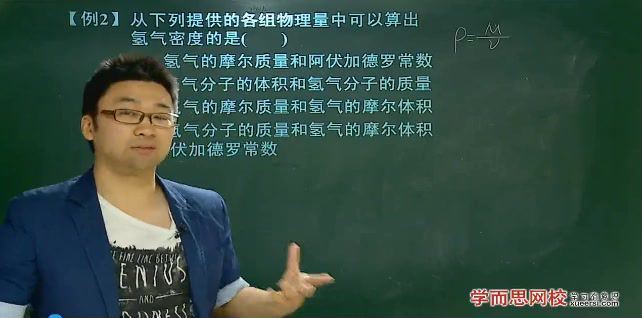 【例2】从下列提供的各组物理量中可以算出
氢气密度的是(　　)
氢气的摩尔质量和阿伏加德罗常数
气分子的体积和氢气分子的质量
气的摩尔质量和氢气的摩尔体积
氢气分子的质量和氢气的摩尔体积
伏加德罗常数
ρ=M/V
FINE LINE BETW
ENIUS
AND
学而思网校
学习改变命运
xueersi.com